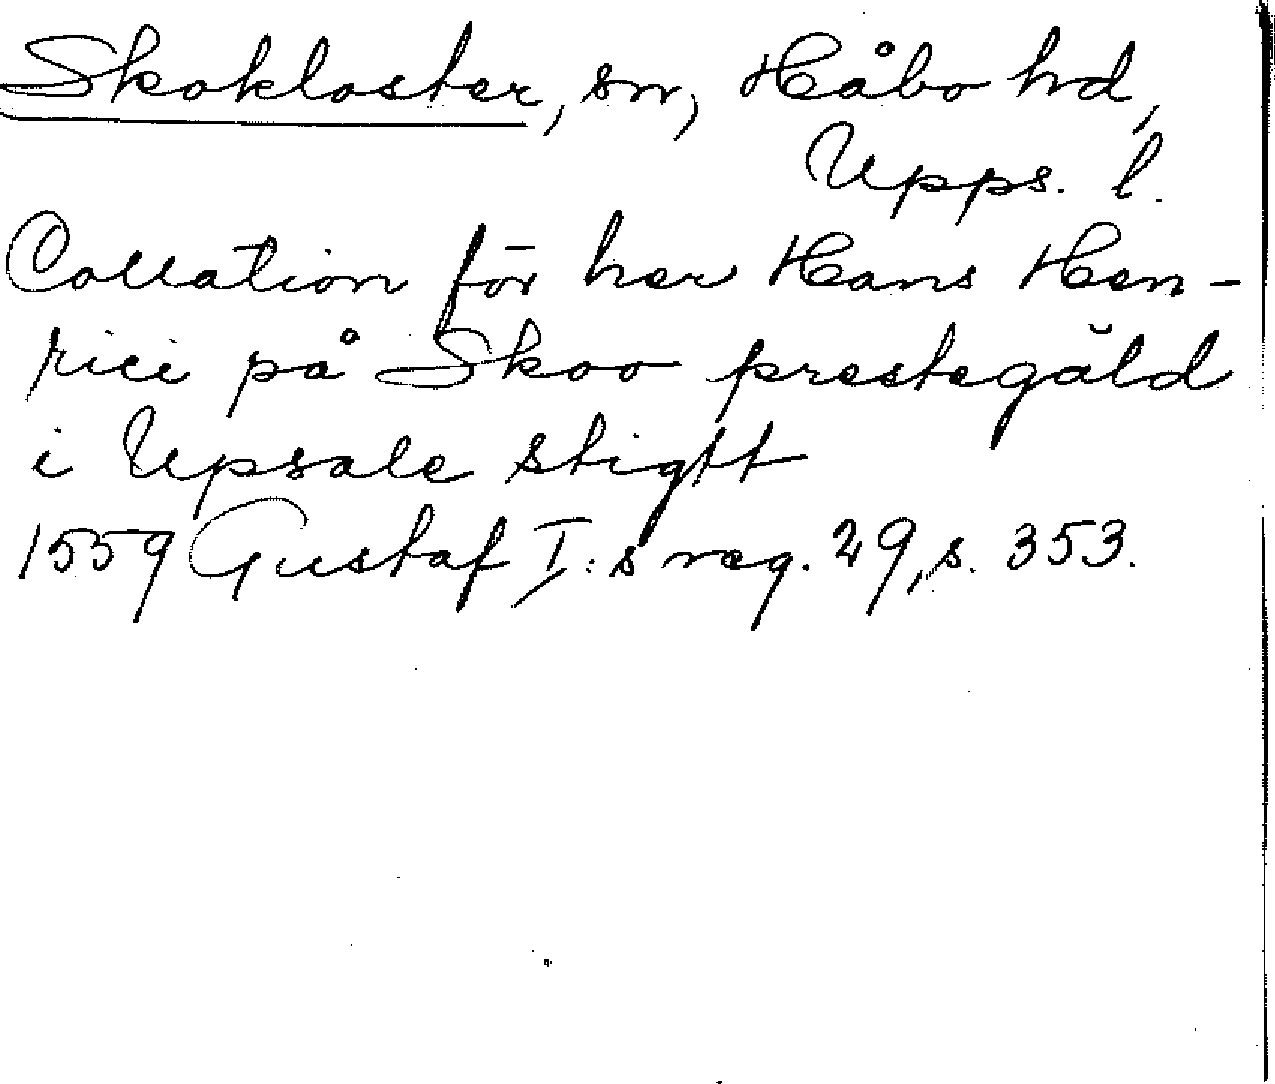 Skokloster, sn, Håbo hd,
Upps. l.
Collation för her Hans Hen-
rici på Skoo prestegäld
i Upsale stigtt
1559 Gustaf I:s reg. 29, s. 353.